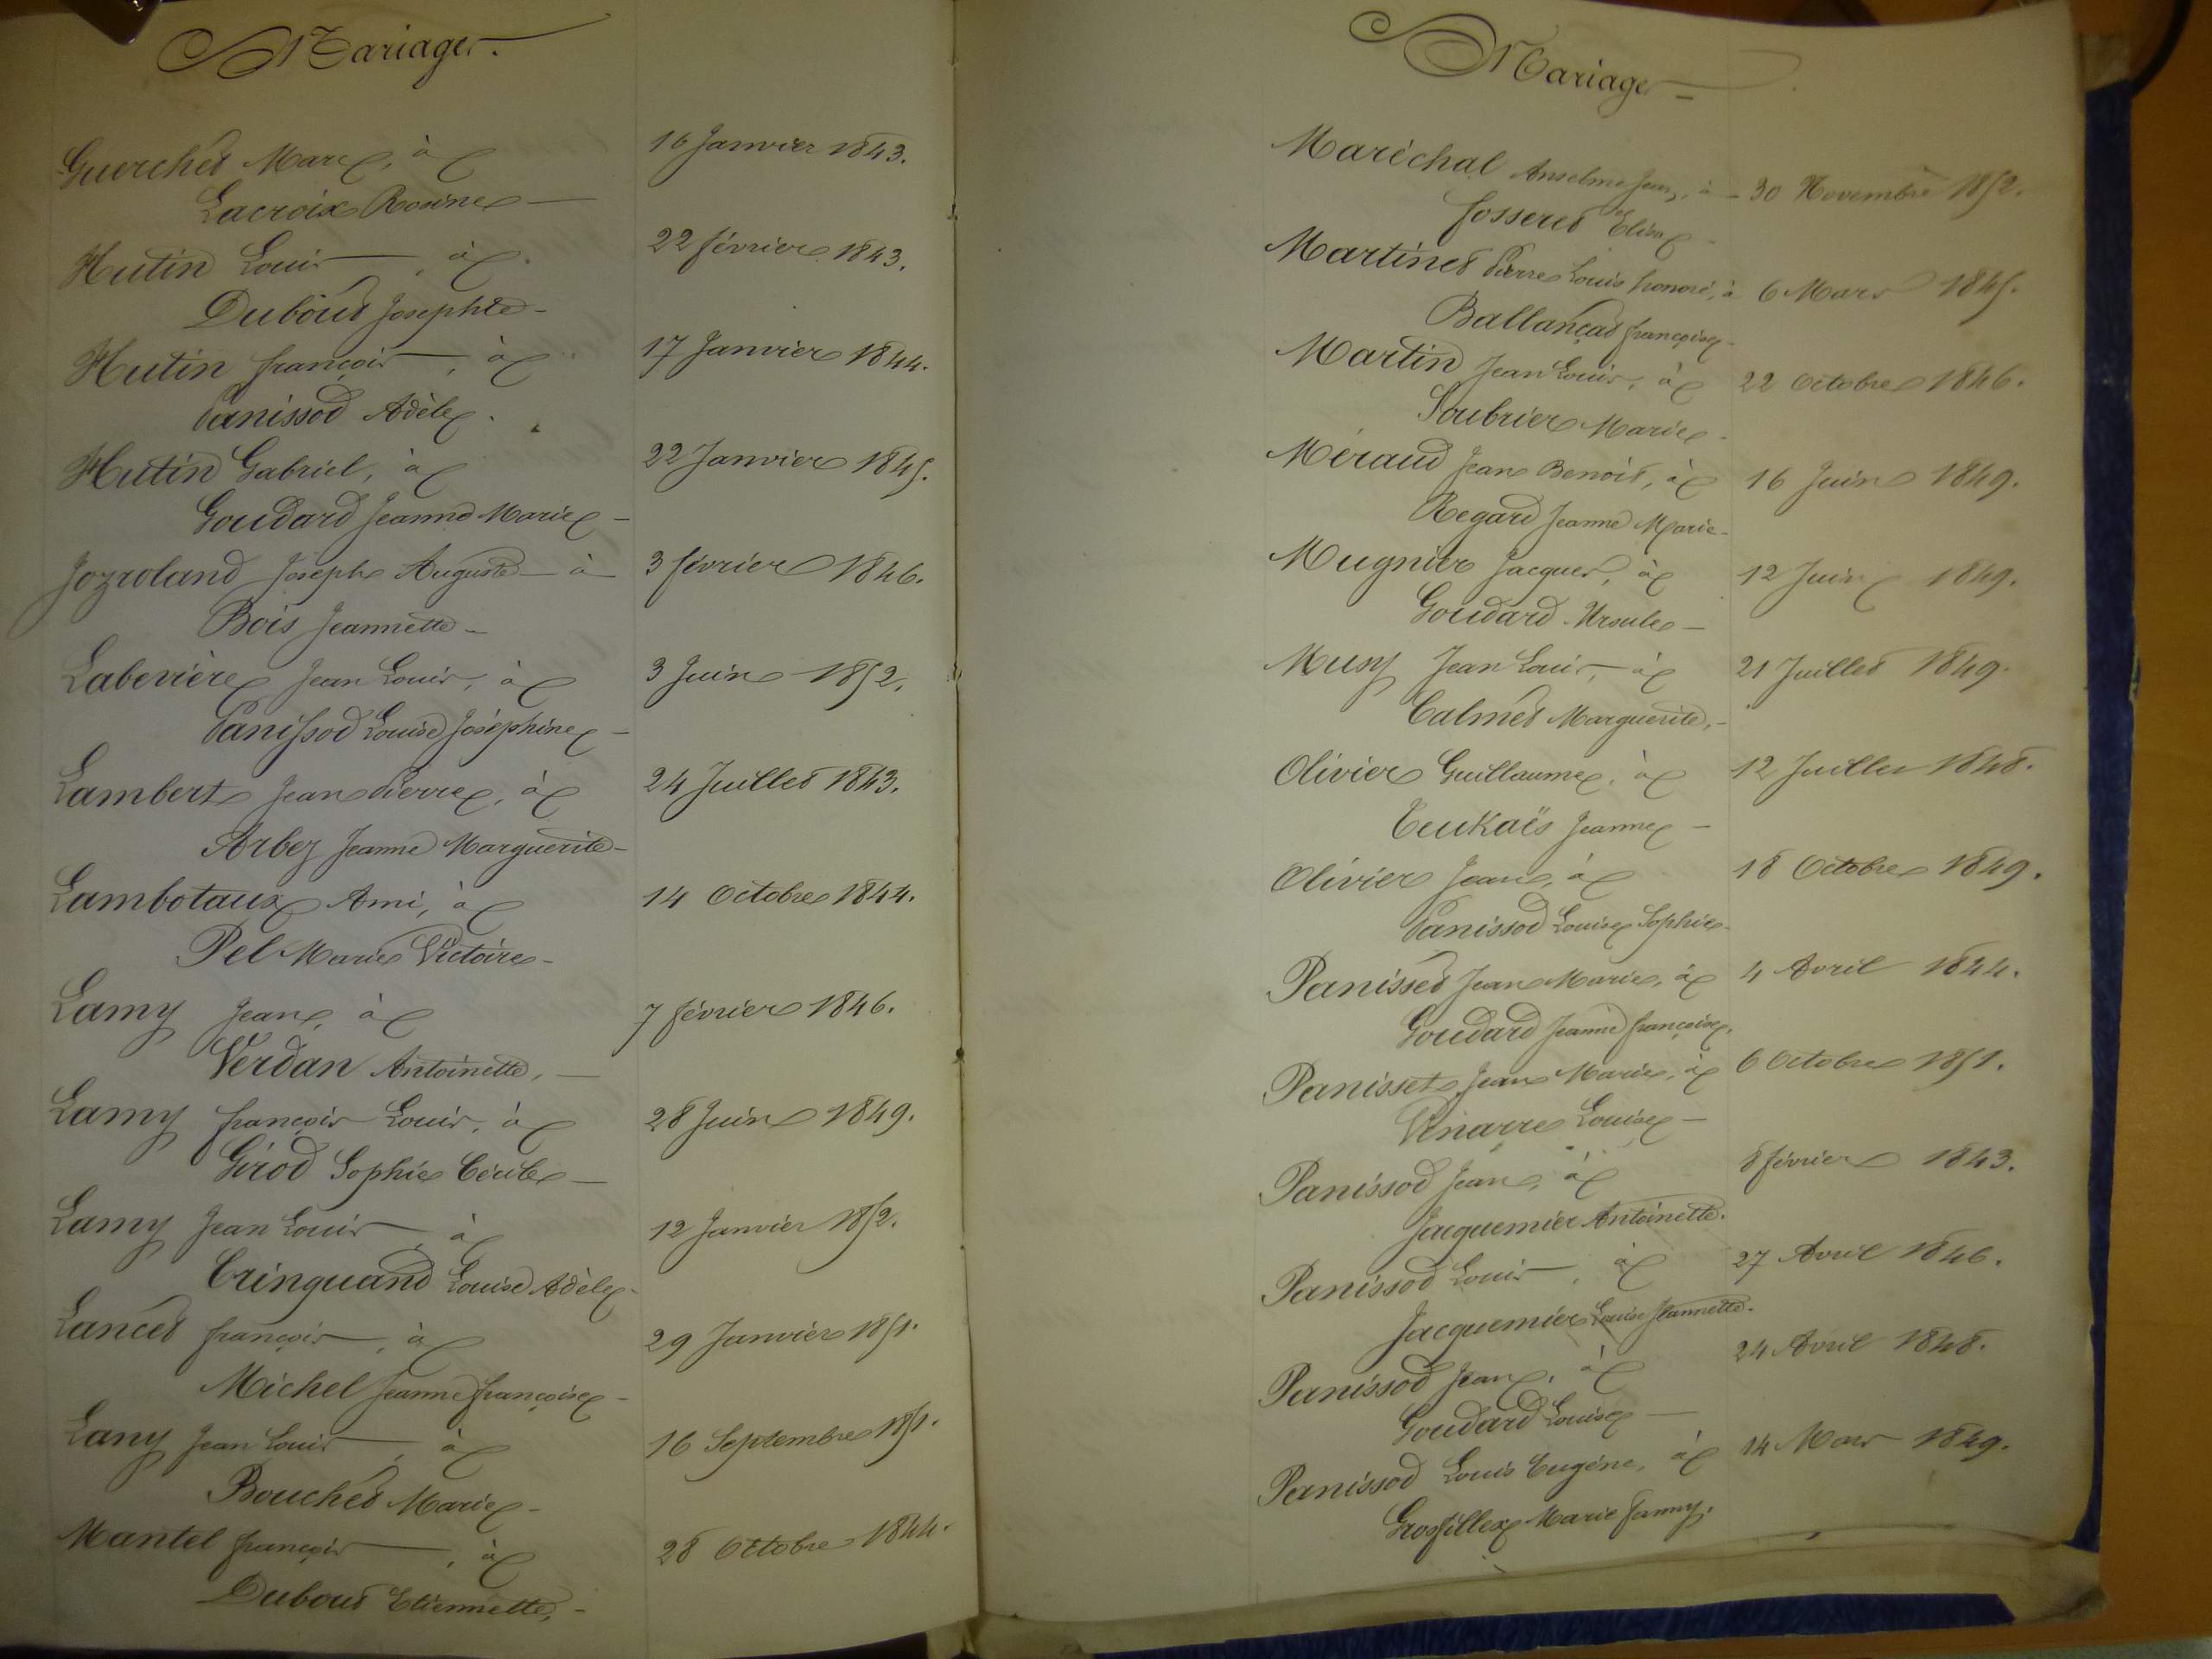 Mariages.
Guerchet Marc, à 16 Janvier 1843.
Lacroix Rosine
Hutin Louis, à 22 février 1843.
Dubout Josephte
Hutin françois, à 17 Janvier 1844.
Panissod Adèle.
Hutin Gabriel, à 22 Janvier 1845.
Goudard Jeanne Marie
Jozroland Joseph Auguste à 3 février 1846.
Bois Jeannette
Labevière Jean Louis, à 3 Juin 1852.
Panissod Louise Joséphine
Lambert Jean Pierre, à 24 Juillet 1843.
Arbez Jeanne Marguerite
Lambotaux Ami, à 14 Octobre 1844.
Pel Marie Victoire
Lamy Jean, à 7 février 1846.
Verdan Antoinette,
Lamy françois Louis, à 28 Juin 1849.
Girod Sophie Cécile
Lamy Jean Louis, à 12 Janvier 1852.
Cringuand Louise Adèle
Lancet françois, à 29 Janvier 1851.
Michel Jeanne françoise
Lany Jean Louis, à 16 Septembre 1851.
Bouchet Marie
Mantel françois, à 28 Octobre 1844.
Dubout Etiennette,
Mariages
Maréchal Anselme Jean, à 30 Novembre 1852.
fosseret Elisa
Martinet Pierre Louis honoré, à 6 Mars 1845.
Ballançat françoise
Martin Jean Louis, à 22 Octobre 1846.
Soubrier Marie
Méraud Jean Benoit, à 16 Juin 1849.
Regard Jeanne Marie
Mugnier Jacques, à 12 Juin 1849.
Goudard Ursule
Musy Jean Louis, à 21 Juillet 1849.
Calmet Marguerite,
Olivier Guillaume, à 12 Juillet 1848.
Jeanne
Olivier Jean, à 18 Octobre 1849.
Panissod Louise Sophie
Panisset Jean Marie, à 4 Avril 1844.
Goudard Jeanne françoise,
Panisset Jean Marie, à 6 Octobre 1851.
Vinarre Louise
Panissod Jean, à 8 février 1843.
Jacquemier Antoinette.
Panissod Louis, à 27 Avril 1846.
Jacquemier Louise Jeannette.
Panissod Jean, à 24 Avril 1848.
Goudard Louise
Panissod Louis Eugène, à 14 Mars 1849.
Grosfillex Marie fanny.